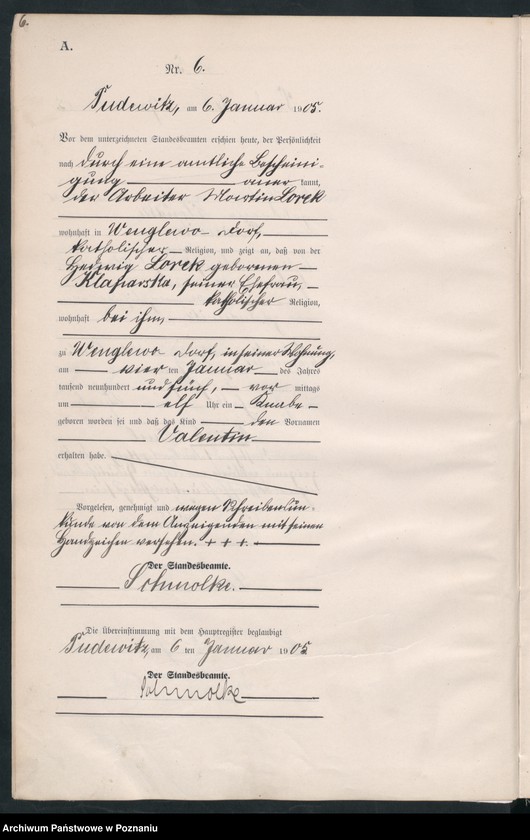 6.
A.
Nr. 6.
Pudewitz, am 6. Januar 1905.
Vor dem unterzeichneten Standesbeamten erschien heute, der Persönlichkeit
nach durch eine amtliche Bescheini-
gung — aner kannt,
der Arbeiter Martin Lorek
wohnhaft in Wenglewo Dorf,
katholischer — Religion, und zeigt an, daß von der
Hedwig Lorek geborenen —
Klaparska, seiner Ehefrau, —
katholischer Religion,
wohnhaft bei ihm,
zu Wenglewo Dorf, in seiner Wohnung,
am — vier ten Januar — des Jahres
tausend neunhundert und fünf, — vor mittags
um — elf Uhr ein — Knabe —
geboren worden sei und daß das Kind — den Vornamen
Valentin
erhalten habe.
Vorgelesen, genehmigt und wegen Schreibensun-
kunde von dem Anzeigenden mit seinen
Handzeichen versehen. + + +. —
Der Standesbeamte.
Schmolke.
Die Übereinstimmung mit dem Hauptregister beglaubigt
Pudewitz, am 6 ten Januar 1905
Der Standesbeamte.
Schmolke
Archiwum Państwowe w Poznaniu